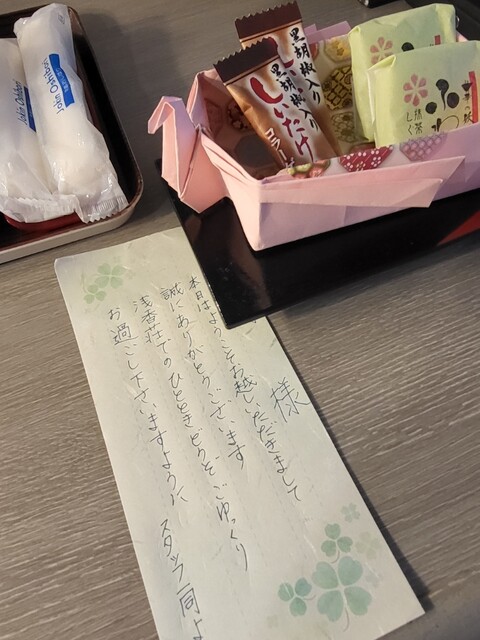 黒胡椒入り
黒胡椒入り
しいたけ
抹茶
様
本日はようこそお越しいただきまして
誠にありがとうございます
浅香荘でのひとときどうぞごゆっくり
お過ごし下さいますように スタッフ一同よ